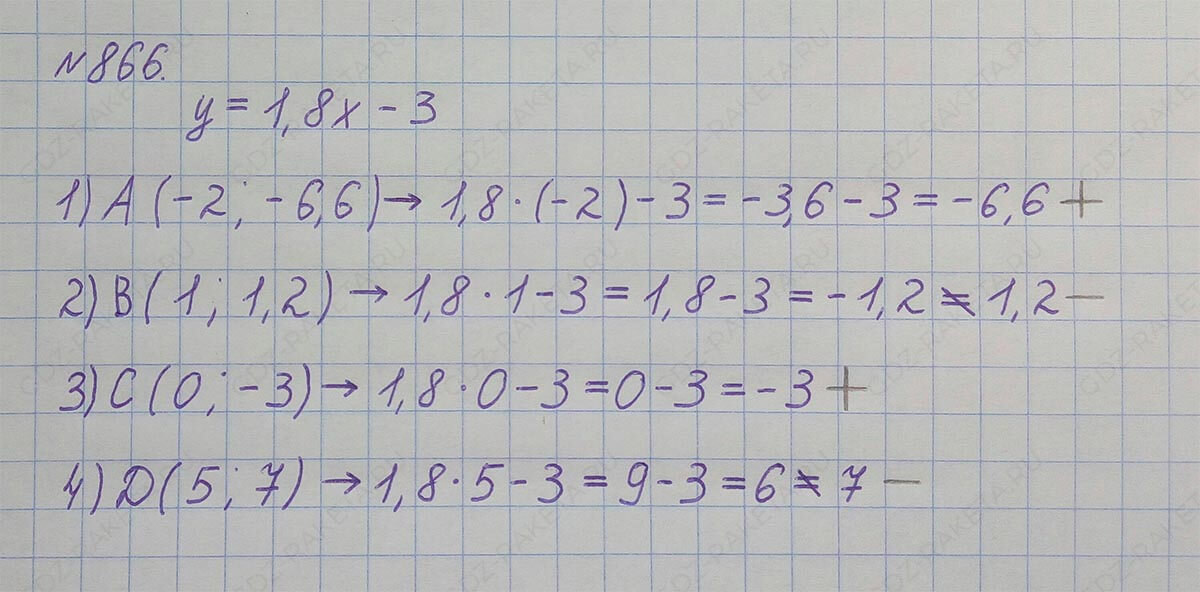 №866.
y = 1,8x - 3
1) A (-2; -6,6) → 1,8 · (-2) - 3 = -3,6 - 3 = -6,6 +
2) B (1; 1,2) → 1,8 · 1 - 3 = 1,8 - 3 = -1,2 ≠ 1,2 —
3) C (0; -3) → 1,8 · 0 - 3 = 0 - 3 = -3 +
4) D (5; 7) → 1,8 · 5 - 3 = 9 - 3 = 6 ≠ 7 —